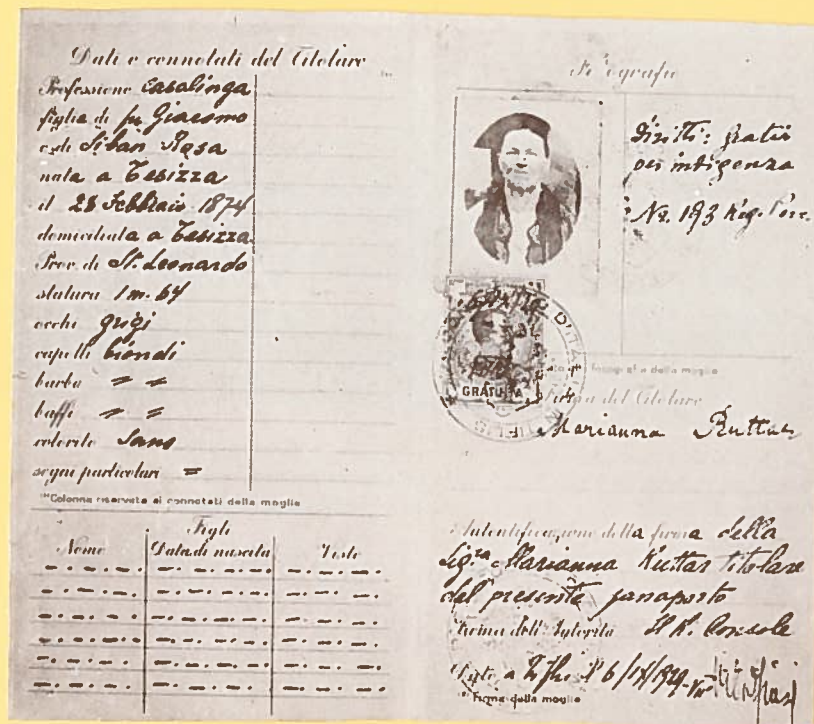 Dati e connotati del Titolare
Professione casalinga
figlia di fu Giacomo
e di Siban Rosa
nata a Tesizza
il 28 Febbraio 1874
domiciliata a Tesizza
Prov. di St. Leonardo
statura 1 m. 64
occhi grigi
capelli biondi
barba = =
baffi = =
colorito Sano
segni particolari =
Colonna riservata ai connotati della moglie
Figli
Nome Data di nascita Visto
Fotografie
Diritti: gratis
per indigenza
No. 193 Reg.
D'ITALIA
TIFLIS
GRATUITA
Fotografia della moglie
Firma del Titolare
Marianna Ruttar
Autentificazione della firma della
Sig.ra Marianna Ruttar titolare
del presente passaporto
Firma dell'Autorità Il R. Console
a Tiflis 6/IX/1929
Firma della moglie